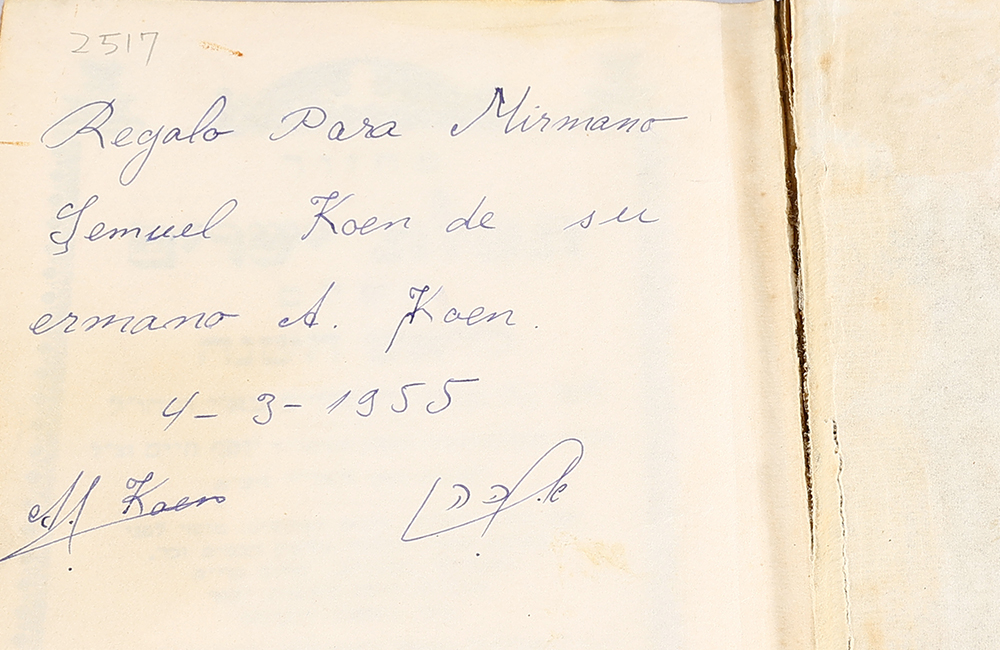 2517
Regalo Para Mirmano
Şemuel Koen de su
ermano A. Koen.
4-3-1955
A. Koen